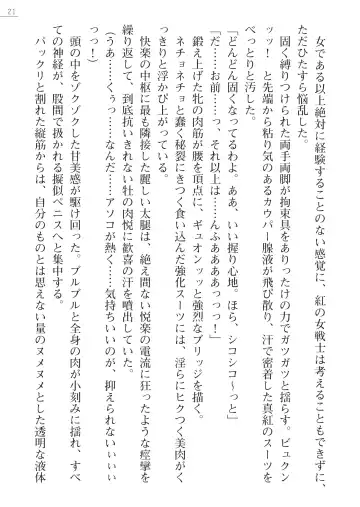 21
女である以上絶対に経験することのない感覚に、紅の女戦士は考えることもできずに、
ただひたすら悶乱した。
固く縛りつけられた両手両脚が拘束具をありったけの力でガツガツと揺らす。ピュクン
ッッ！　と先端から粘り気のあるカウパー腺液が飛び散り、汗で密着した真紅のスーツを
べっとりと汚した。
「どんどん固くなってるわよ。ああ、いい握り心地。ほら、シコシコ〜っと」
「だ……お前……そ、それ以上は……んふぁああああっっ！」
鍛え上げた牝の肉筋が腰を頂点に、ギュオンッッと強烈なブリッジを描く。
ネチョネチョと蠢く秘裂にきつく食い込んだ強化スーツには、淫らにヒクつく美肉がく
っきりと浮かび上がっている。
快楽の中枢に最も隣接した麗しい太腿は、絶え間ない悦楽の電流に狂ったような痙攣を
繰り返して、到底抗いきれない牡の肉悦に歓喜の汗を噴出していた。
（うあ……くぅっ……なんだ……アソコが熱く……気持ちいいのが、抑えられないぃぃぃ
っっ！）
頭の中をゾクゾクした甘美感が駆け回った。ブルブルと全身の肉が小刻みに揺れ、すべ
ての神経が、股間で扱かれる擬似ペニスへと集中する。
パックリと割れた縦筋からは、自分のものとは思えない量のヌメヌメとした透明な液体